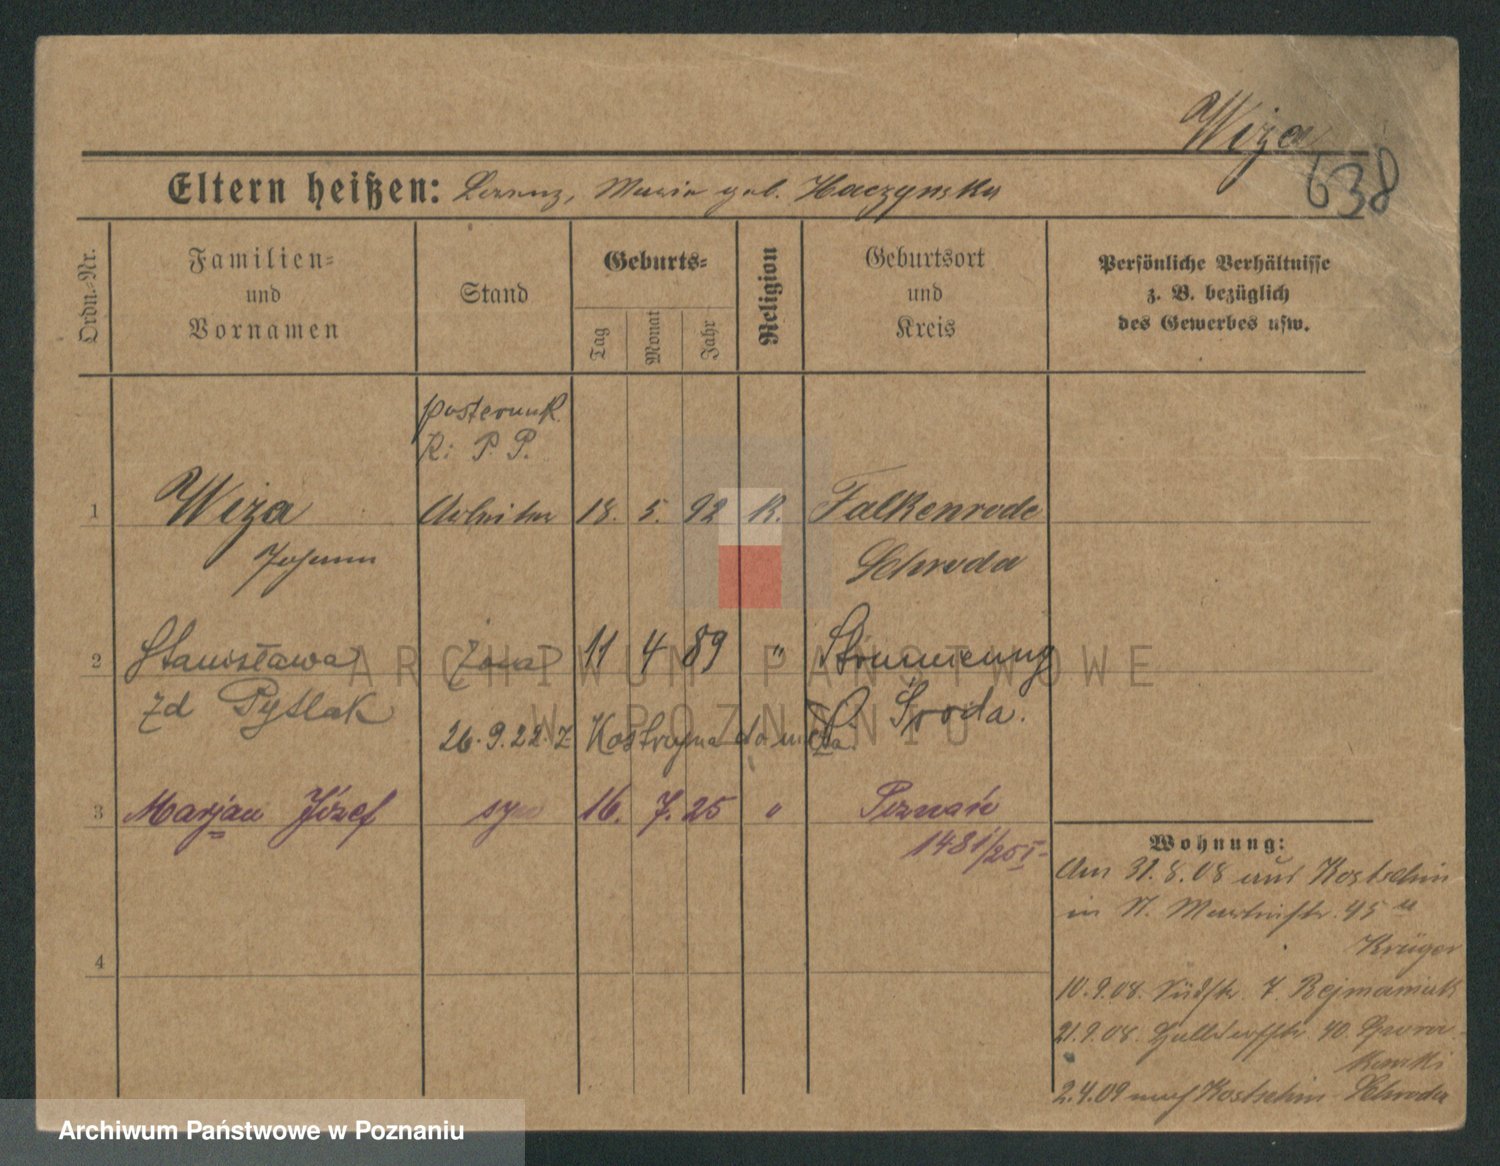 Wiza
638
Eltern heißen: Lorenz, Maria geb. Haczynska
Ordn.-Nr.
Familien- und Vornamen
Stand
Geburts-
Tag
Monat
Jahr
Religion
Geburtsort und Kreis
Persönliche Verhältnisse
z. B. bezüglich
des Gewerbes usw.
posterunk.
K: P. P.
1 Wiza Arbeiter 18. 5. 92 K. Falkenrode
Johann Schroda
2 Stanisława żona 11 4 89 "
zd Pyślak Środa.
26.9.22. Z Kostrzyna
3 Marjan Józef syn 16. 7. 25 " Poznań
1481/25 I
4
Wohnung:
Am 31.8.08 aus Kostschin
in St. Martinstr. 45
Krüger
10.9.08. Südstr. 7. Rejmaniak
21.9.08. 40.
2.4.09 nach Kostschin Schroda
ARCHIWUM PAŃSTWOWE
W POZNANIU
Archiwum Państwowe w Poznaniu